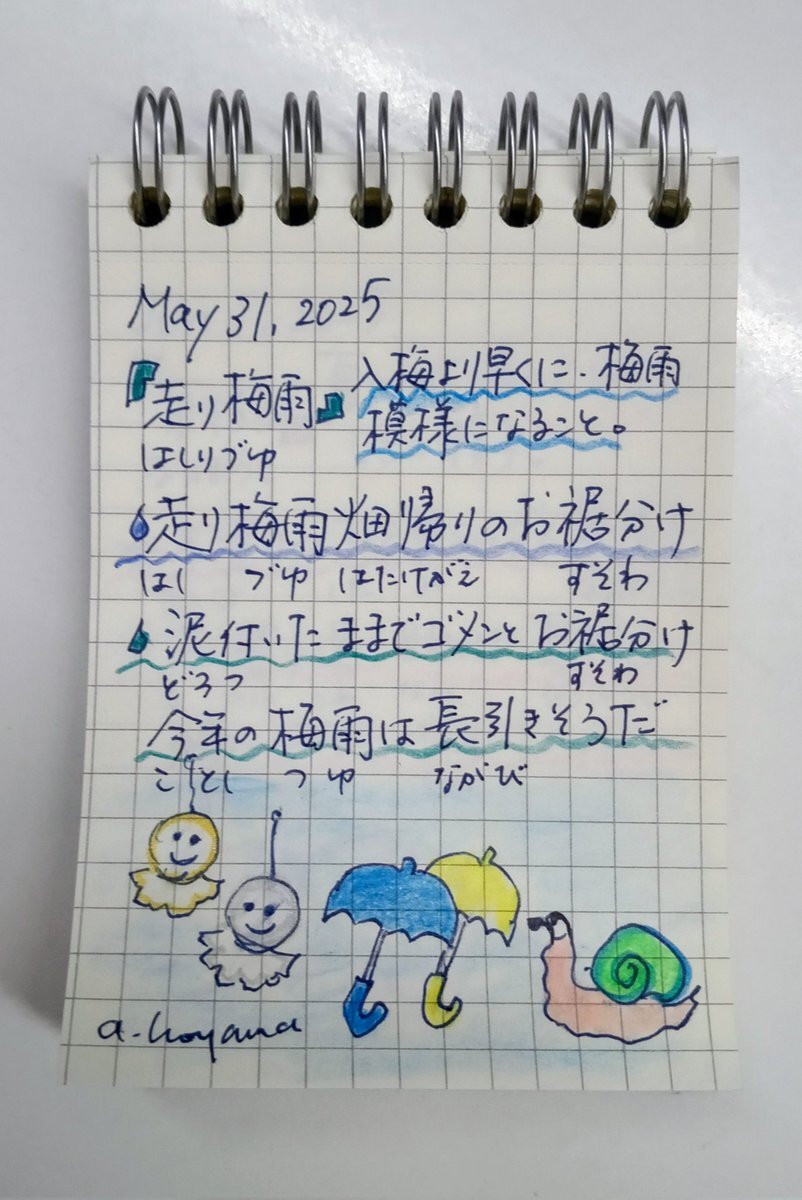 May 31, 2025
『走り梅雨』
はしりづゆ
入梅より早くに、梅雨
模様になること。
走り梅雨畑帰りのお裾分け
はし づゆ はたけがえ すそわ
泥付いたままでゴメンとお裾分け
どろつ すそわ
今年の梅雨は長引きそうだ
ことし つゆ ながび